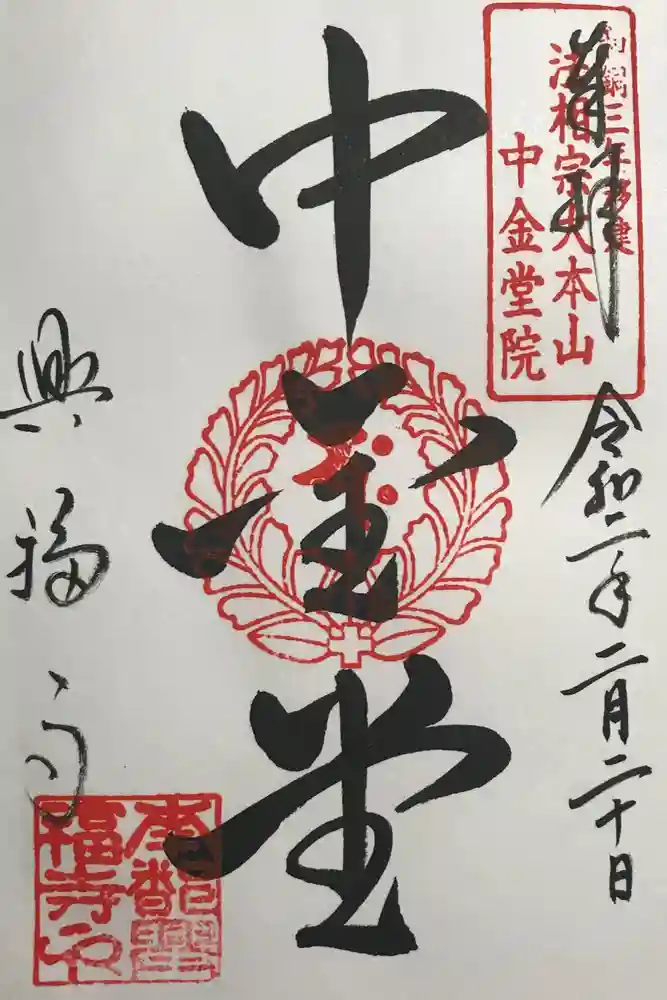 奉拝
和銅三年移建
法相宗大本山
中金堂院
令和二年二月二十日
中金堂
興福寺
福寺之